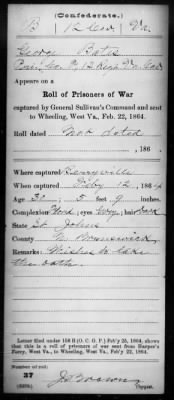 (Confederate.)
B 12 Cav. Va.
George Bates
Co. 12 Reg't Va. Cav.
Appears on a
Roll of Prisoners of War
captured by General Sullivan's Command and sent
to Wheeling, West Va., Feb. 22, 1864.
Roll dated
Not dated
, 186
Where captured Berryville
When captured Feby 12, 1864
Age 30, 5 feet 9 inches.
Complexion eyes Grey, hair Dark
State St. Johns
County N. Brunswick
Remarks: Wishes to take
the oath.
Letter filed under 156 B (O. C. G. P.) Feb'y 25, 1864, shows
that this is a roll of prisoners of war sent from Harper's
Ferry, West Va., to Wheeling, West Va., Feb'y 22, 1864.
Number of roll:
37
Copyist.